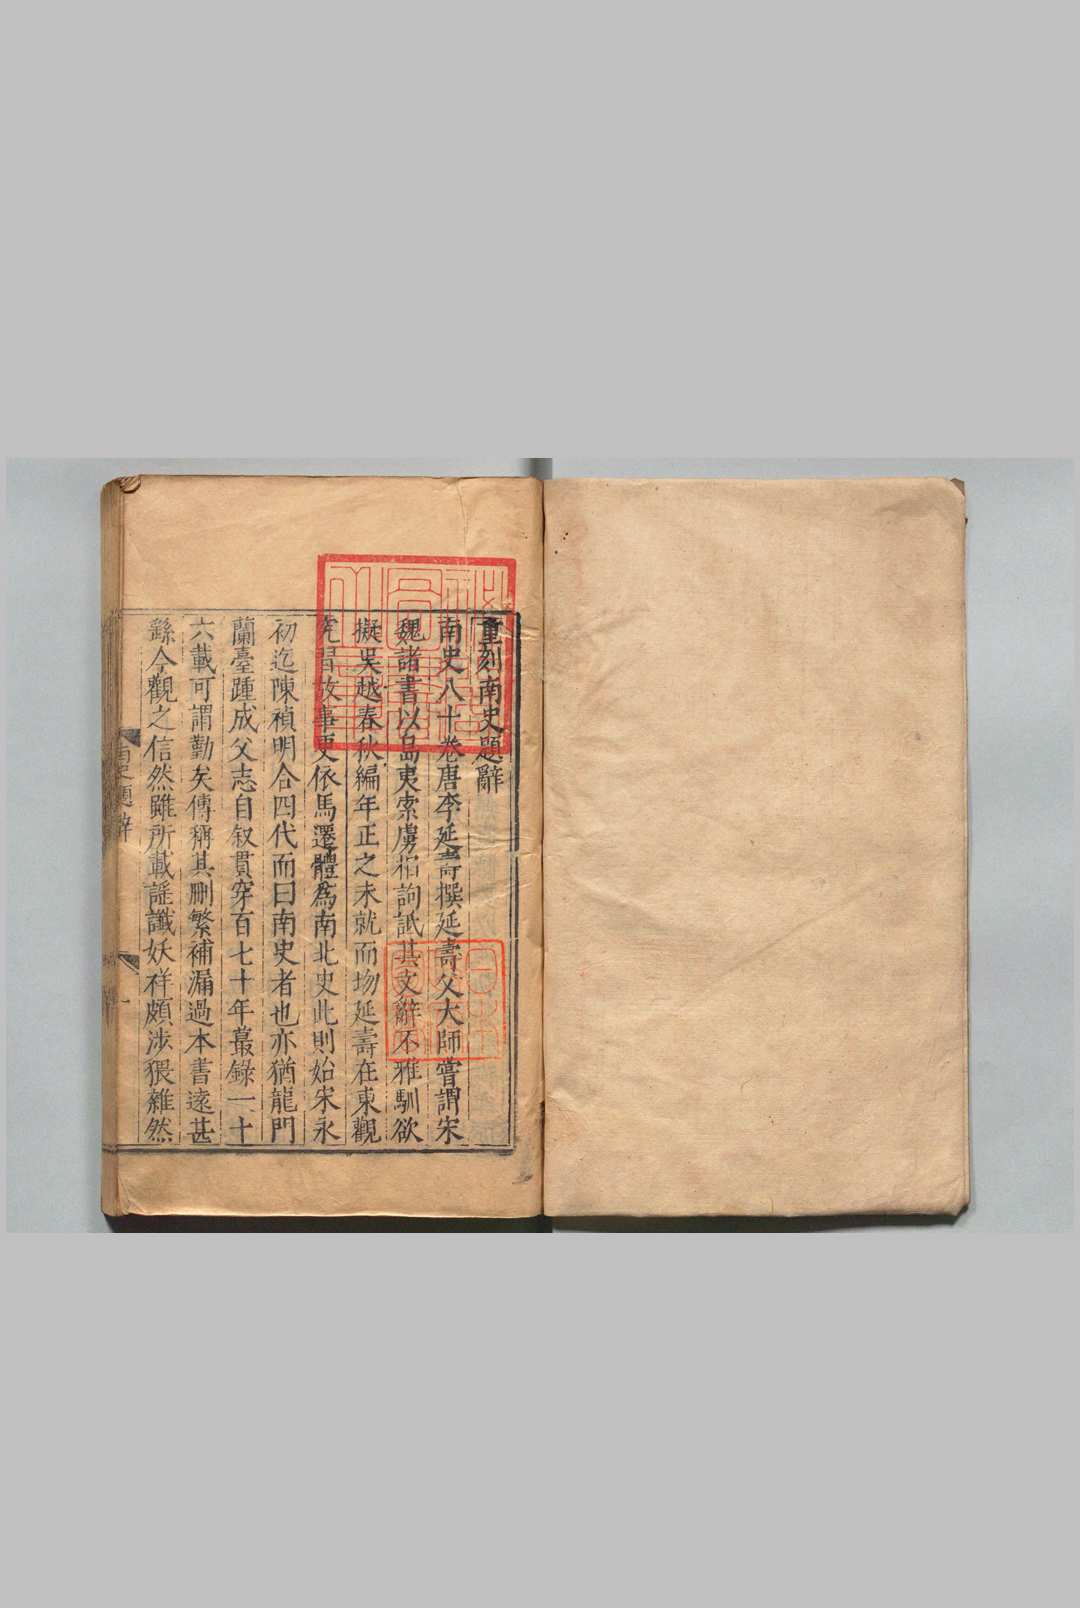 重刻南史題辭
南史八十卷唐李延壽撰延壽父大師嘗謂宋
魏諸書以島夷索虜相詢詆其文辭不雅馴欲
擬吳越春秋編年正之未就而歿延壽在東觀
究習故事更依馬遷體爲南北史此則始宋永
初迄陳禎明合四代而曰南史者也亦猶龍門
蘭臺踵成父志自敘貫穿百七十年蕞錄一十
六載可謂勤矣傳稱其刪繁補漏過本書遠甚
繇今觀之信然雖所載謠讖妖祥頗涉猥雜然
南史題辭
一